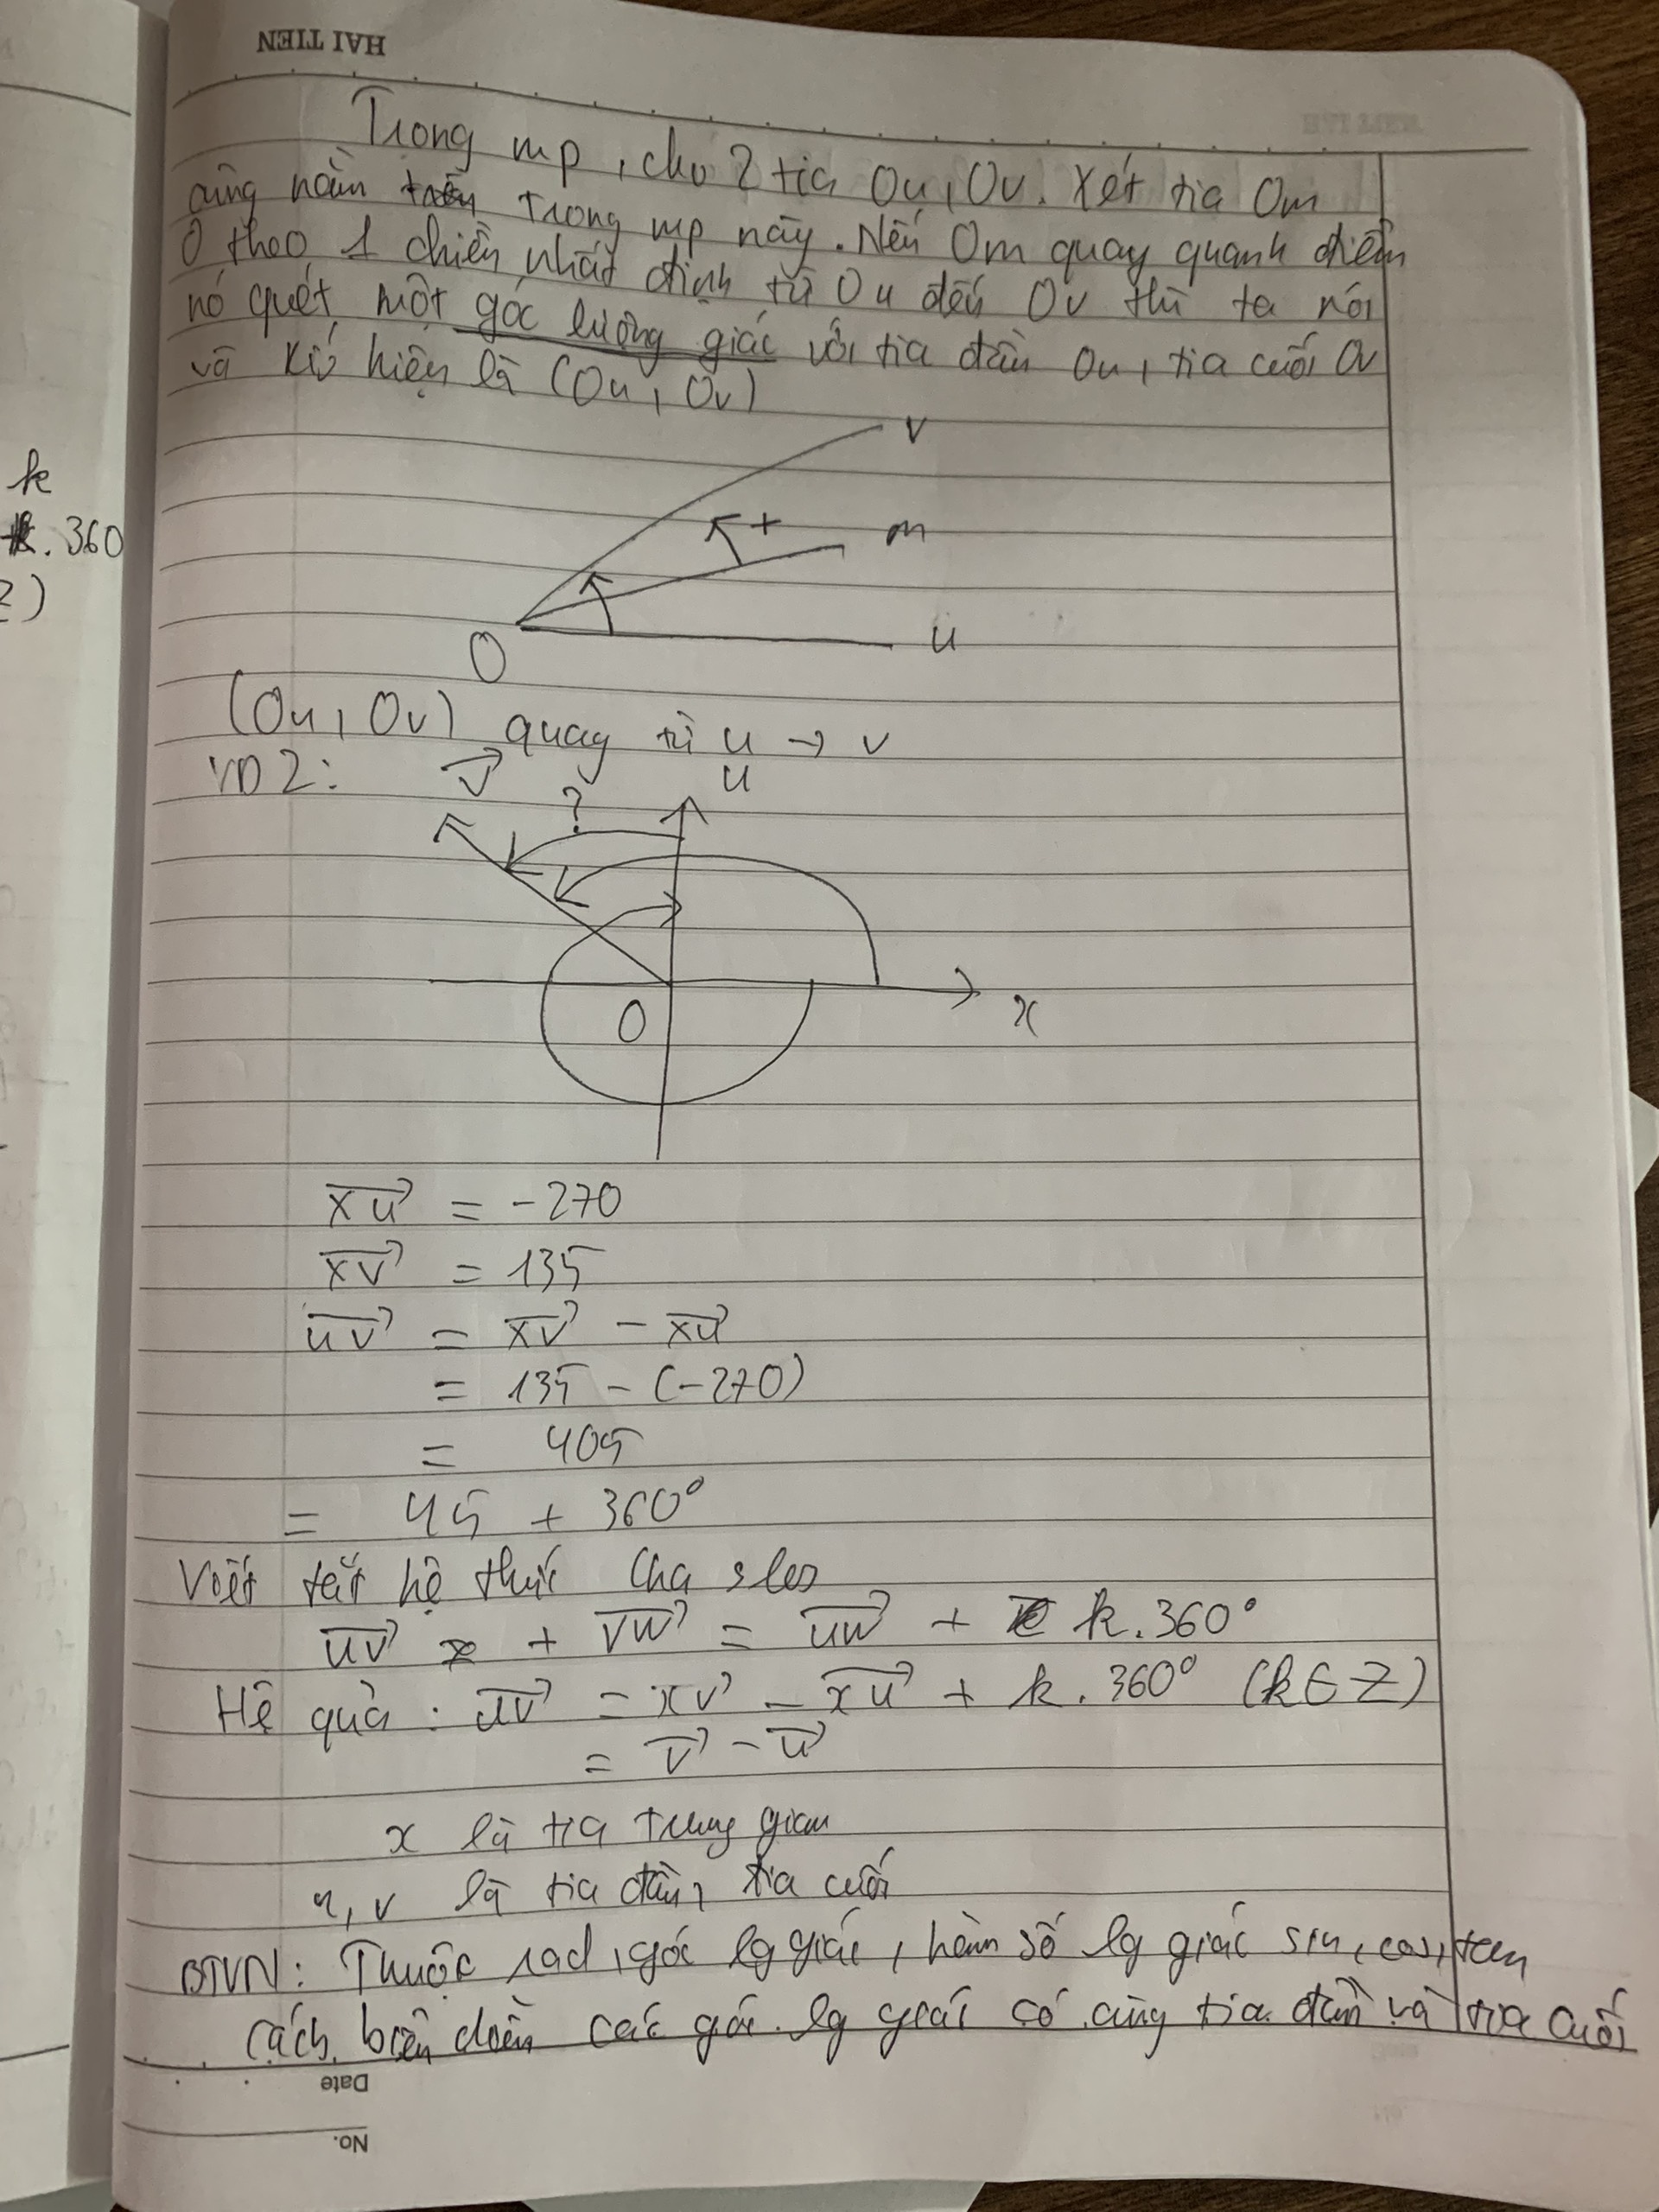 HAI TIEN
Trong mp, cho 2 tia Ou, Ov. Xét tia Om
cùng nằm trên trong mp này. Nếu Om quay quanh điểm
O theo 1 chiều nhất định từ Ou đến Ov thì ta nói
nó quét một góc lượng giác với tia đầu Ou, tia cuối Ov
và kí hiệu là (Ou, Ov)
v
k
+ m
k. 360
Z)
O u
(Ou, Ov) quay từ u → v
VD2: v⃗ u
?
O x
xu⃗ = -270
xv⃗ = 135
uv⃗ = xv⃗ - xu⃗
= 135 - (-270)
= 405
= 45 + 360°
Viết tắt hệ thức Cha sles
uv⃗ + vw⃗ = uw⃗ + k. 360°
Hệ quả: uv⃗ = xv⃗ - xu⃗ + k. 360° (k∈Z)
= v⃗ - u⃗
x là tia trung gian
u, v là tia đầu, tia cuối
BTVN: Thuộc rad, góc lg giác, hàm số lg giác sin, cos, tan
cách biểu diễn các góc lg giác có cùng tia đầu và tia cuối
Date
No.